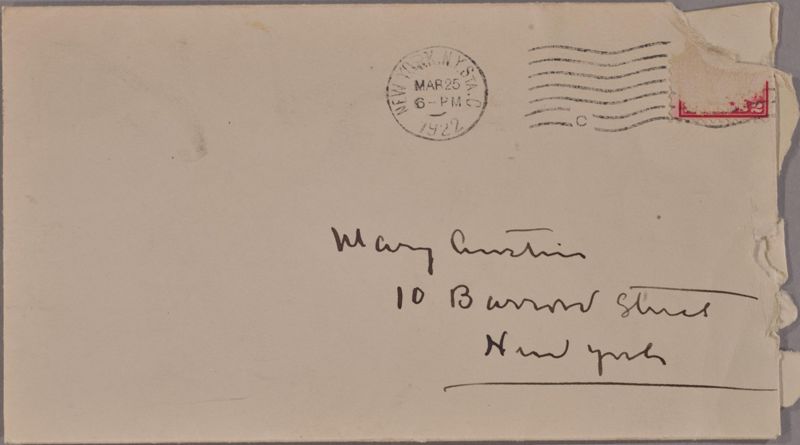 NEW YORK, N.Y. STA. C
MAR 25
6-PM
1922
C
2
Mary Austin
10 Barrow Street
New York